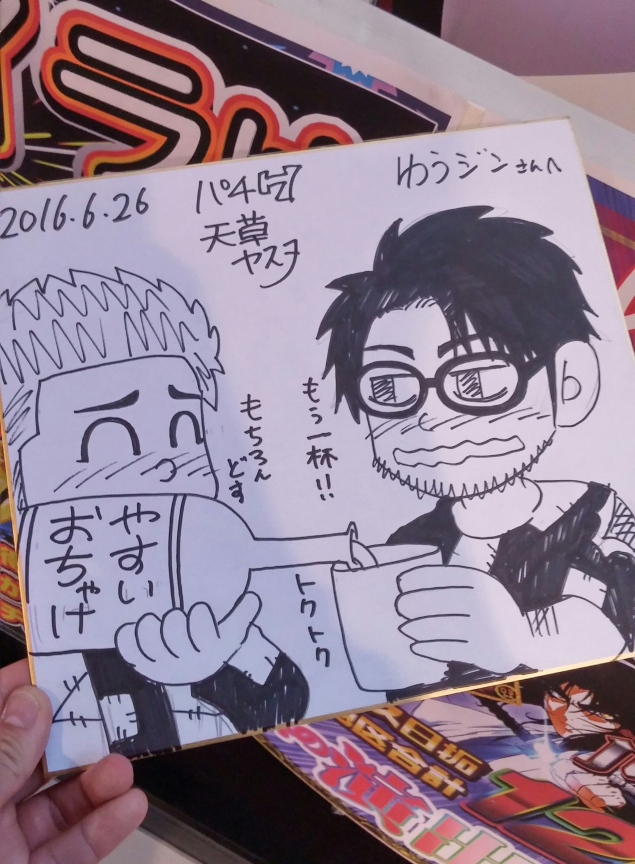 2016.6.26
パチ厄
天草
ヤスヲ
ゆうジンさんへ
もう一杯!!
もちろん
どす
やすい
おちゃけ
トクトク